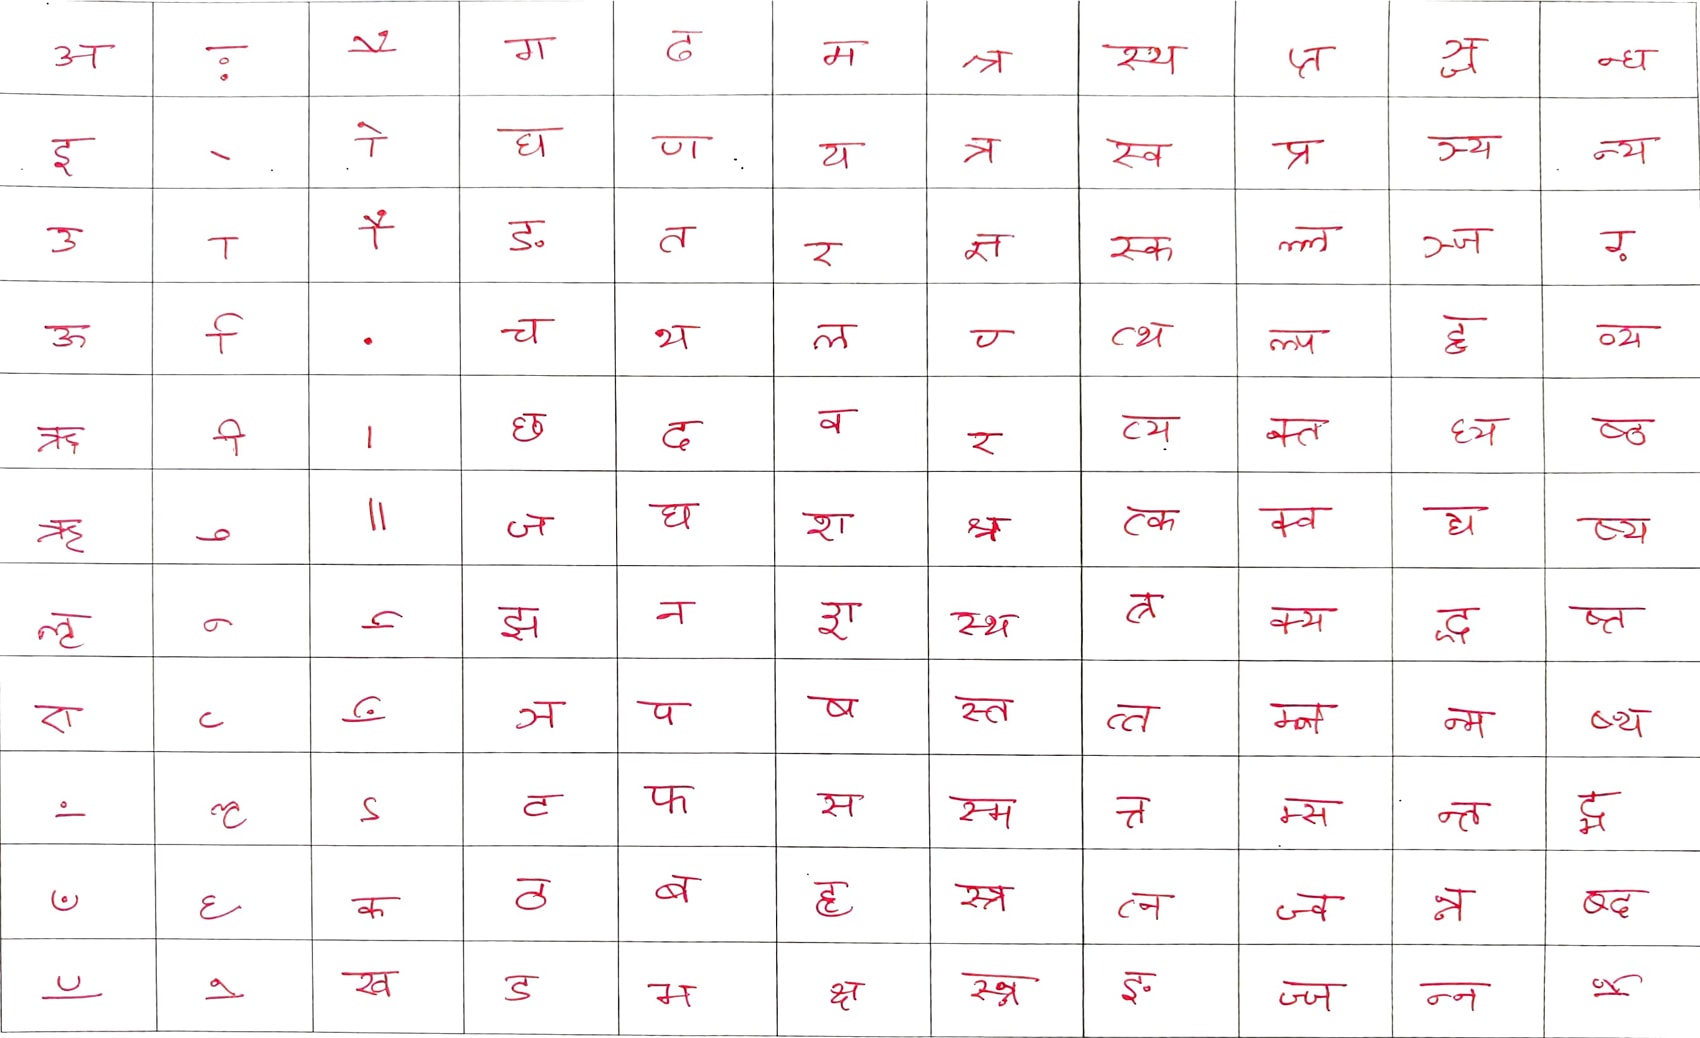 अ ः ै ग ढ म त्र स्थ प्त ञ्ज न्ध
इ ् ो घ ण य त्र स्व प्र ञ्य न्य
उ ा ौ ङ त र त्त स्क ल्ल ञ्ज ऱ
ऊ ि . च थ ल ण त्थ ल्प ह्ह व्य
ऋ ी । छ द व र त्य क्त ध्य ष्ठ
ॠ ु ॥ ज ध श श्र त्क क्व द्य ष्य
ऌ ू र्‍ झ न श स्थ त्र क्य द्ध ष्त
रा ृ र्ं ञ प ष स्त त्त म्न न्म ष्थ
ं ॢ ऽ ट फ स स्म त्त म्स न्त द्भ
ँ ६ क ठ ब ह स्त्र त्न ज्व न्न ब्द
ँ े ख ड भ क्ष स्न ङ ज्ज न्न ैं